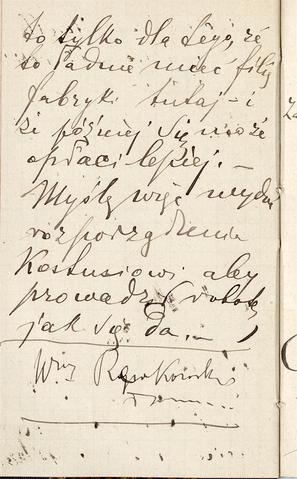 to tylko dla tego, że
to ładnie mieć filię
fabryki tutaj - i
że później się może
opłaci lepiej. -
Myślę więc wydać
rozporządzenia
Kostusiowi aby
prowadził robotę
jak się da. -